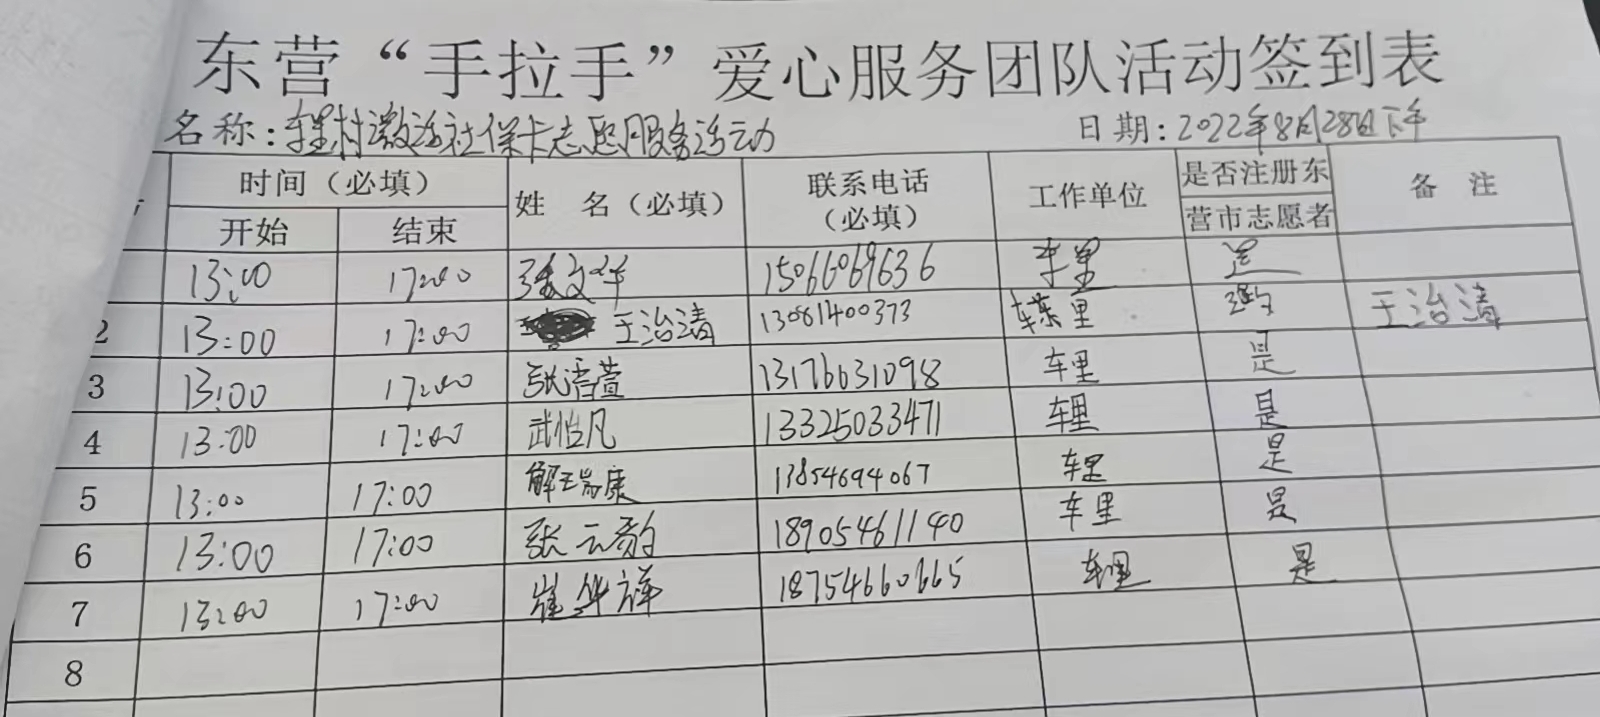 东营“手拉手”爱心服务团队活动签到表
名称：车里村激活社保卡志愿服务活动 日期：2022年8月28日下午
时间（必填） 姓 名（必填） 联系电话（必填） 工作单位 是否注册东营市志愿者 备 注
开始 结束
13:00 17:00 张文华 15066069636 车里 是
2 13:00 17:00 王治清 13061400373 车里 王治清
3 13:00 17:00 张清萱 13176631098 车里 是
4 13:00 17:00 武怡凡 13325033471 车里 是
5 13:00 17:00 解瑞康 13854694067 车里 是
6 13:00 17:00 张云豹 18905461140 车里 是
7 13:00 17:00 崔华祥 18754660665 车里 是
8